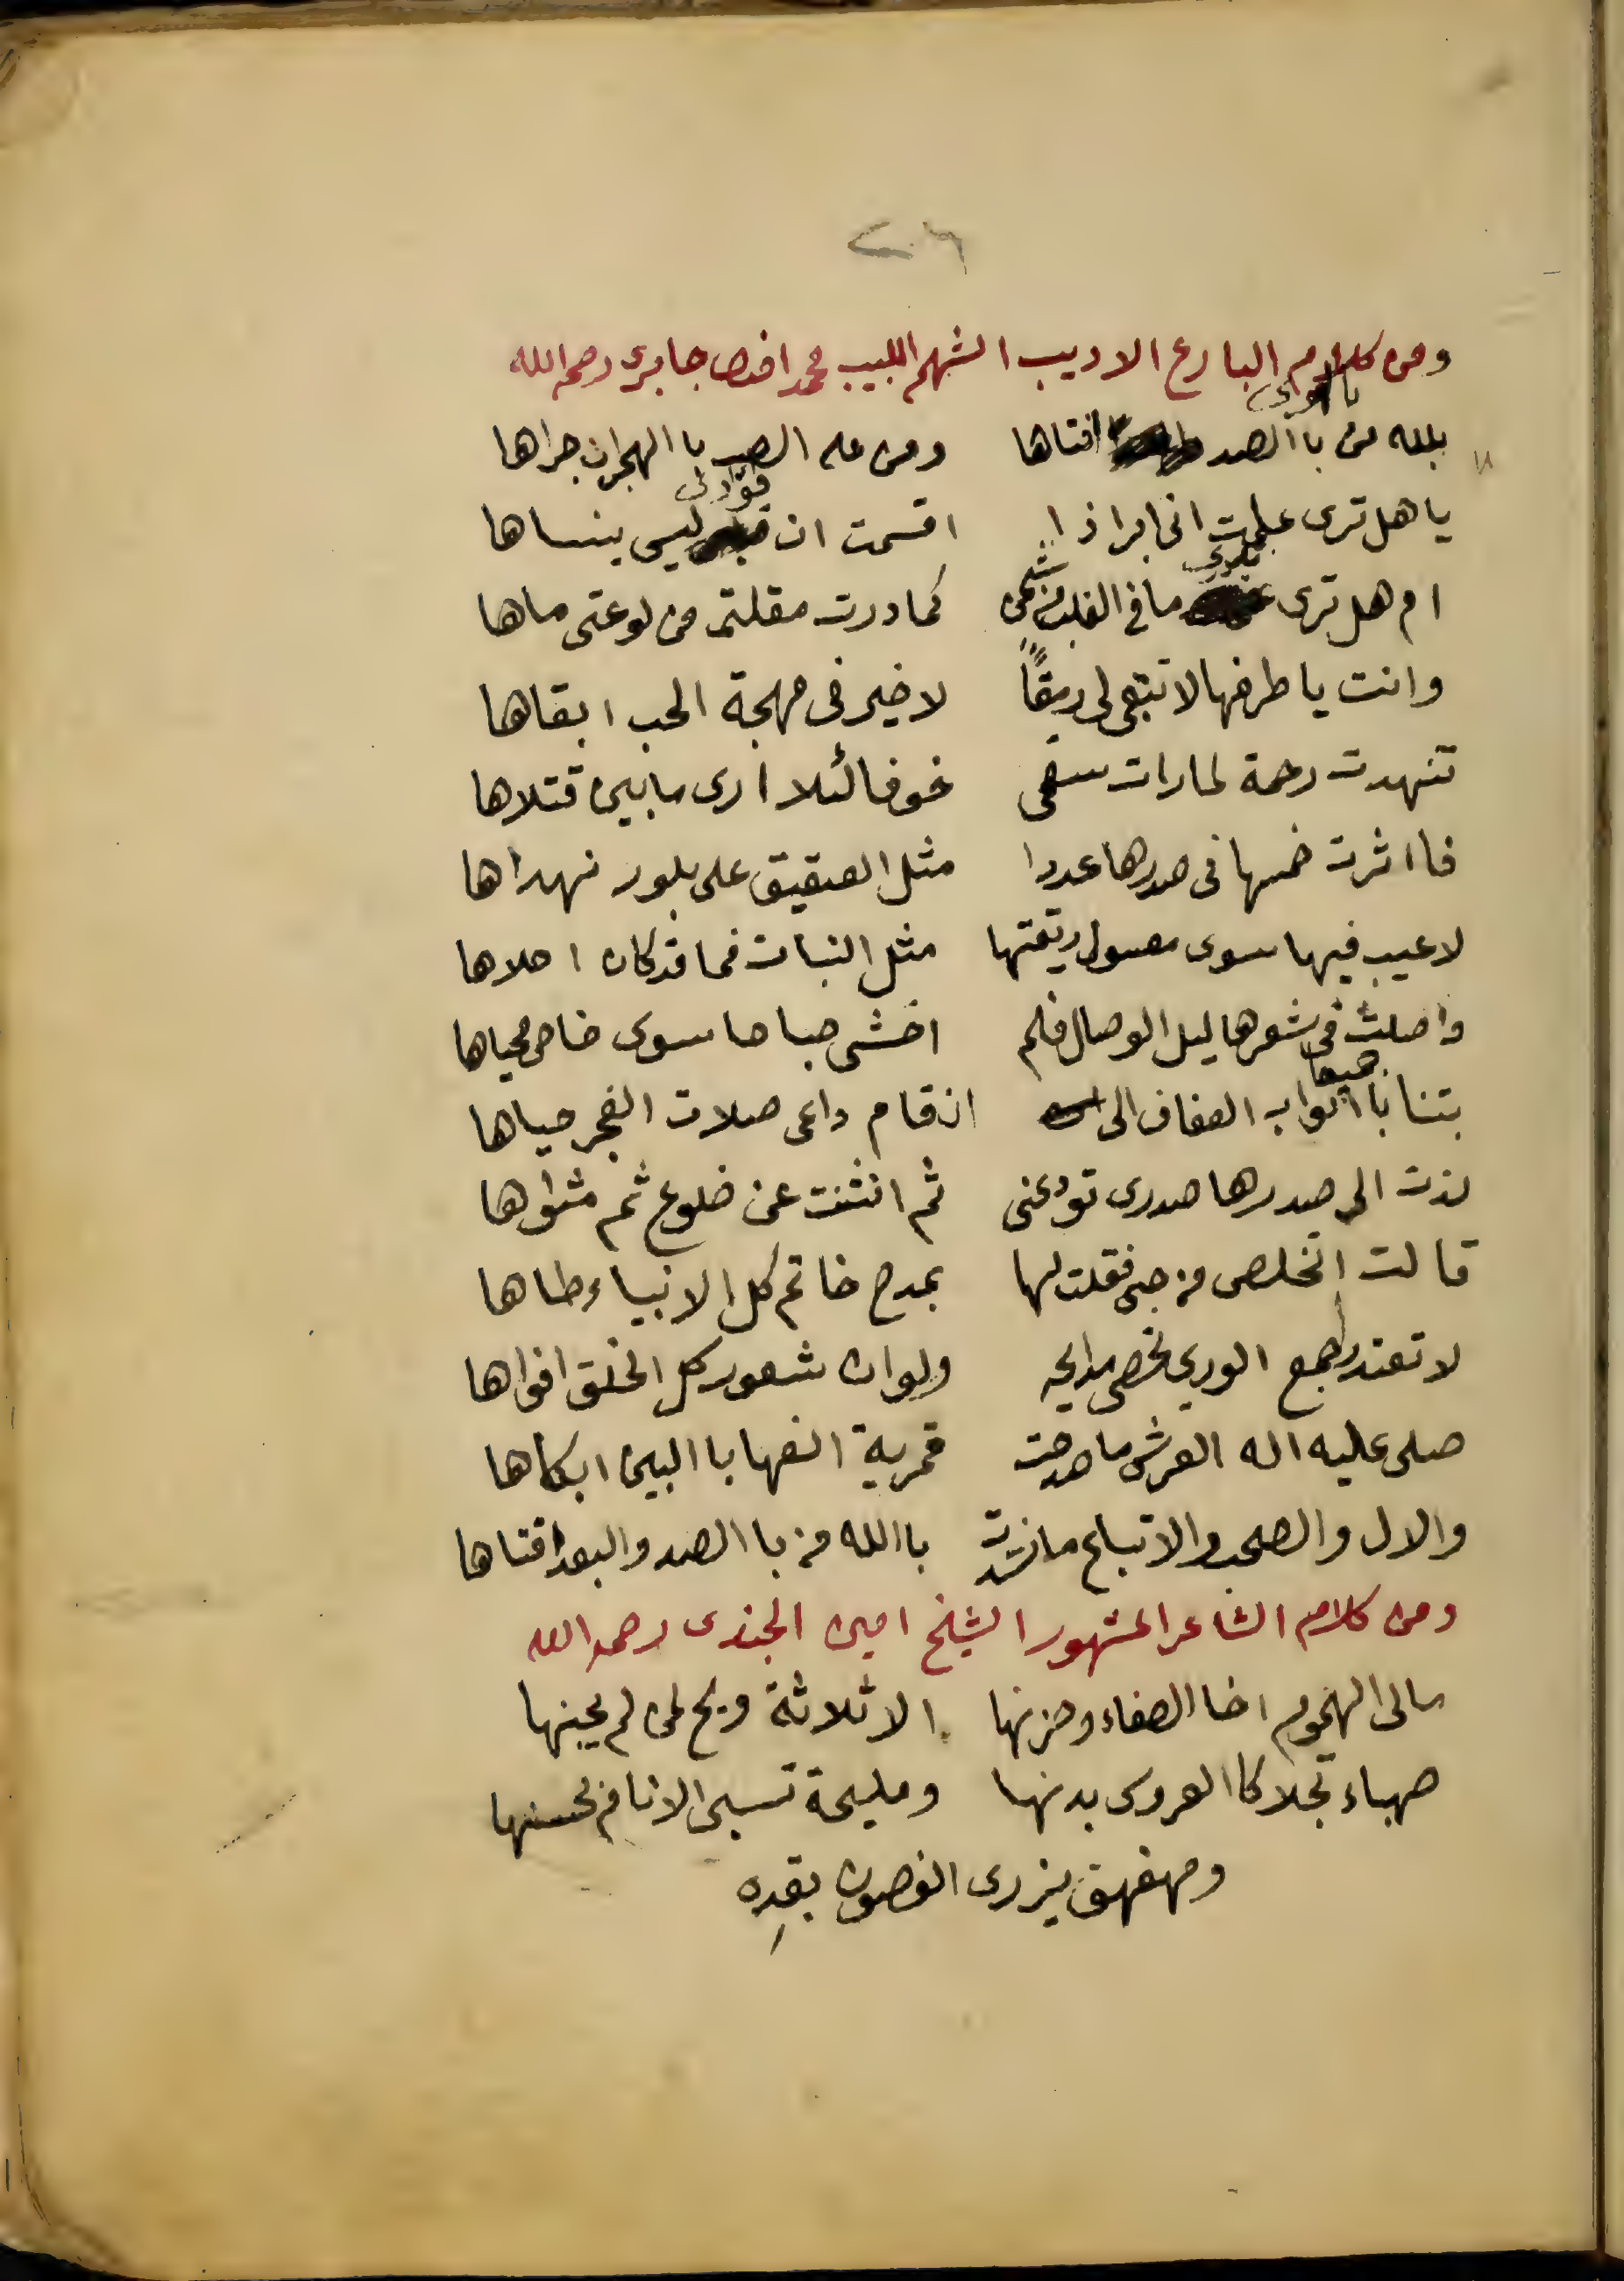 ٢٠٦
ومن كلام البارع الاديب الشهم اللبيب محمد افندى جابرى رحمه الله
بلله من باالصد افتاها ومن على الصب باالهجران جراها
يا هل ترى علمت انى ابرا ذا اقسمت ان فؤادى ليس ينساها
ام هل ترى ما في القلب من شجن كما درت مقلتى من لوعتى ماها
وانت يا طرفها لا تبقى لى رمقًا لا خير فى مهجة الحب ابقاها
تنهدت رحمة لما رات سقمى خوفا لئلا ارى ما بين قتلاها
فااثرت خمسها فى صدرها عددا مثل العقيق على بلور نهداها
لا عيب فيها سوى معسول ريقتها مثل النبات فما قد كان احلاها
واصلت فى شعرها ليل الوصال فلم اخشى صباحا سوى ضاحى محياها
جميعا
بتنا باثواب العفاف الى ان قام داعى صلات الفجر حياها
لذت الى صدرها صدرى تودعنى ثم انثنت عن ضلوع ثم مثواها
قالت اتخلص من حبى فقلت لها بمدح خاتم كل الانبياء طاها
لا تقتدر اجمع الورى تحصى مدايحه ولو ان شعور كل الخلق افواها
صلى عليه اله العرش ما صدحت قمرية الفها باالبين ابكاها
والال والصحب والاتباع ما نشدت باالله من باالصد والبعد افتاها
ومن كلام الشاعر المشهور الشيخ امين الجندى رحمه الله
مالى الهموم اخا الصفاء وحزنها الا ثلاثة ويح لمن لم يجنها
صهباء تجلا كاالعروس بدنها ومليحة تسبى الانام بحسنها
ومهفهف يزرى الغصون بقدِه